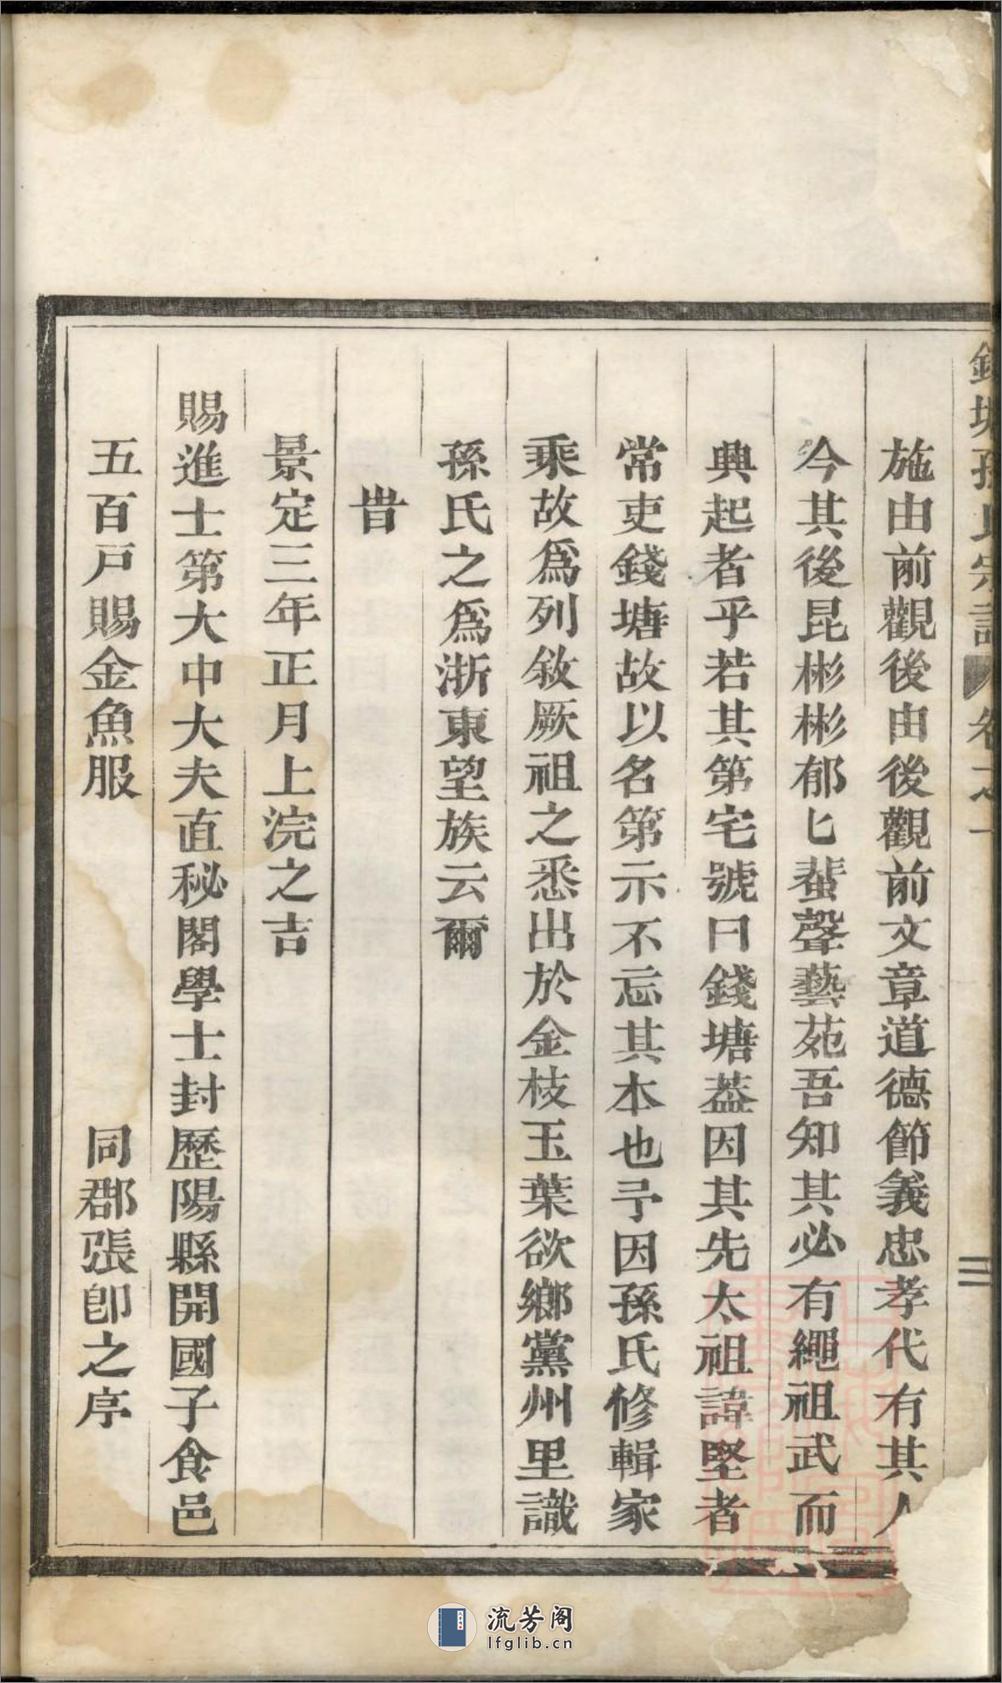 錢塘孫氏宗譜 卷之一 二
施由前觀後由後觀前文章道德節義忠孝代有其人
今其後昆彬彬郁匕蜚聲藝苑吾知其必有繩祖武而
興起者乎若其第宅號曰錢塘葢因其先太祖諱堅者
常吏錢塘故以名第示不忘其本也予因孫氏修輯家
乘故為列敘厥祖之悉出於金枝玉葉欲鄉黨州里識
孫氏之為浙東望族云爾
旹
景定三年正月上浣之吉
賜進士第大中大夫直秘閣學士封歷陽縣開國子食邑
五百戶賜金魚服 同郡張卽之序
流芳阁
lfglib.cn